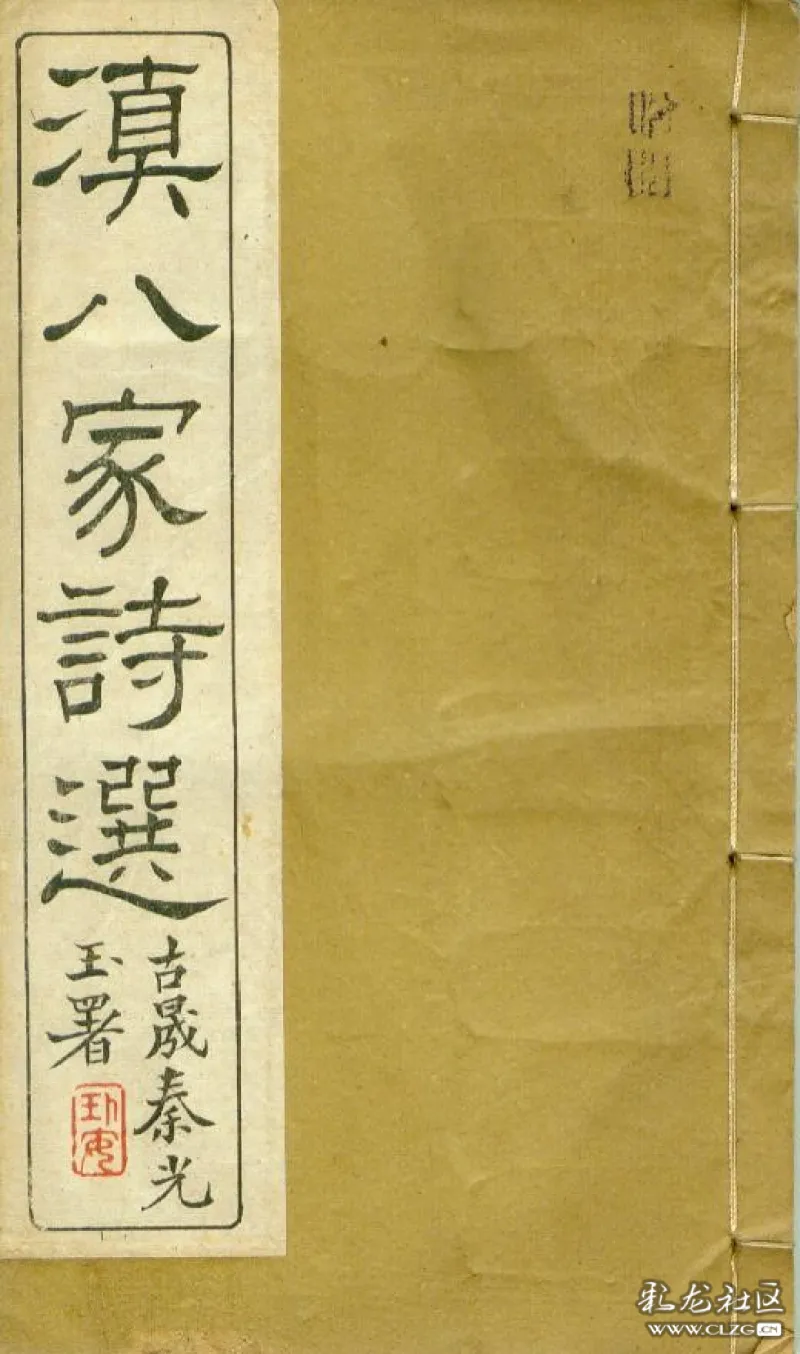 滇八家詩選
古晟秦光
玉署
彩龙社区
WWW.CLZG.CN